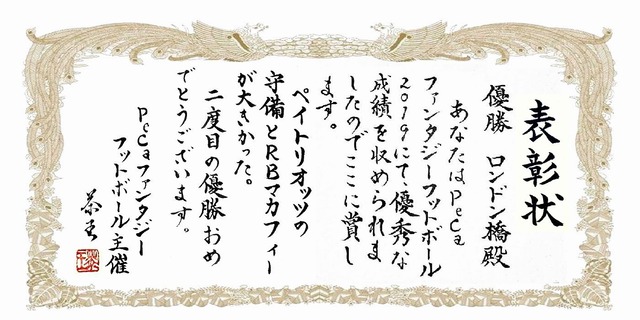 表彰状
優勝 ロンドン橋殿
あなたはPeCa
ファンタジーフットボール
2019にて優秀な
成績を収められま
したのでここに賞し
ます。
ペイトリオッツの
守備とRBマカフィー
が大きかった。
二度目の優勝おめ
でとうございます。
PeCaファンタジー
フットボール主催